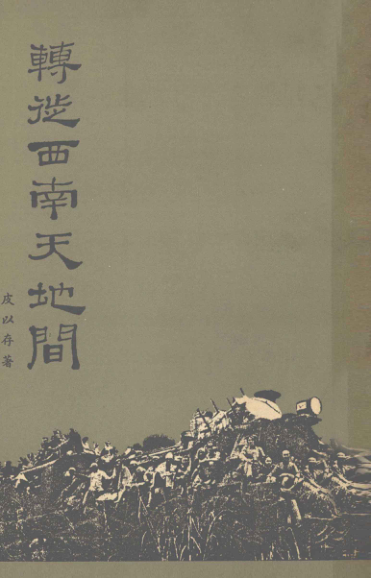 轉徙西南天地間
皮以存著